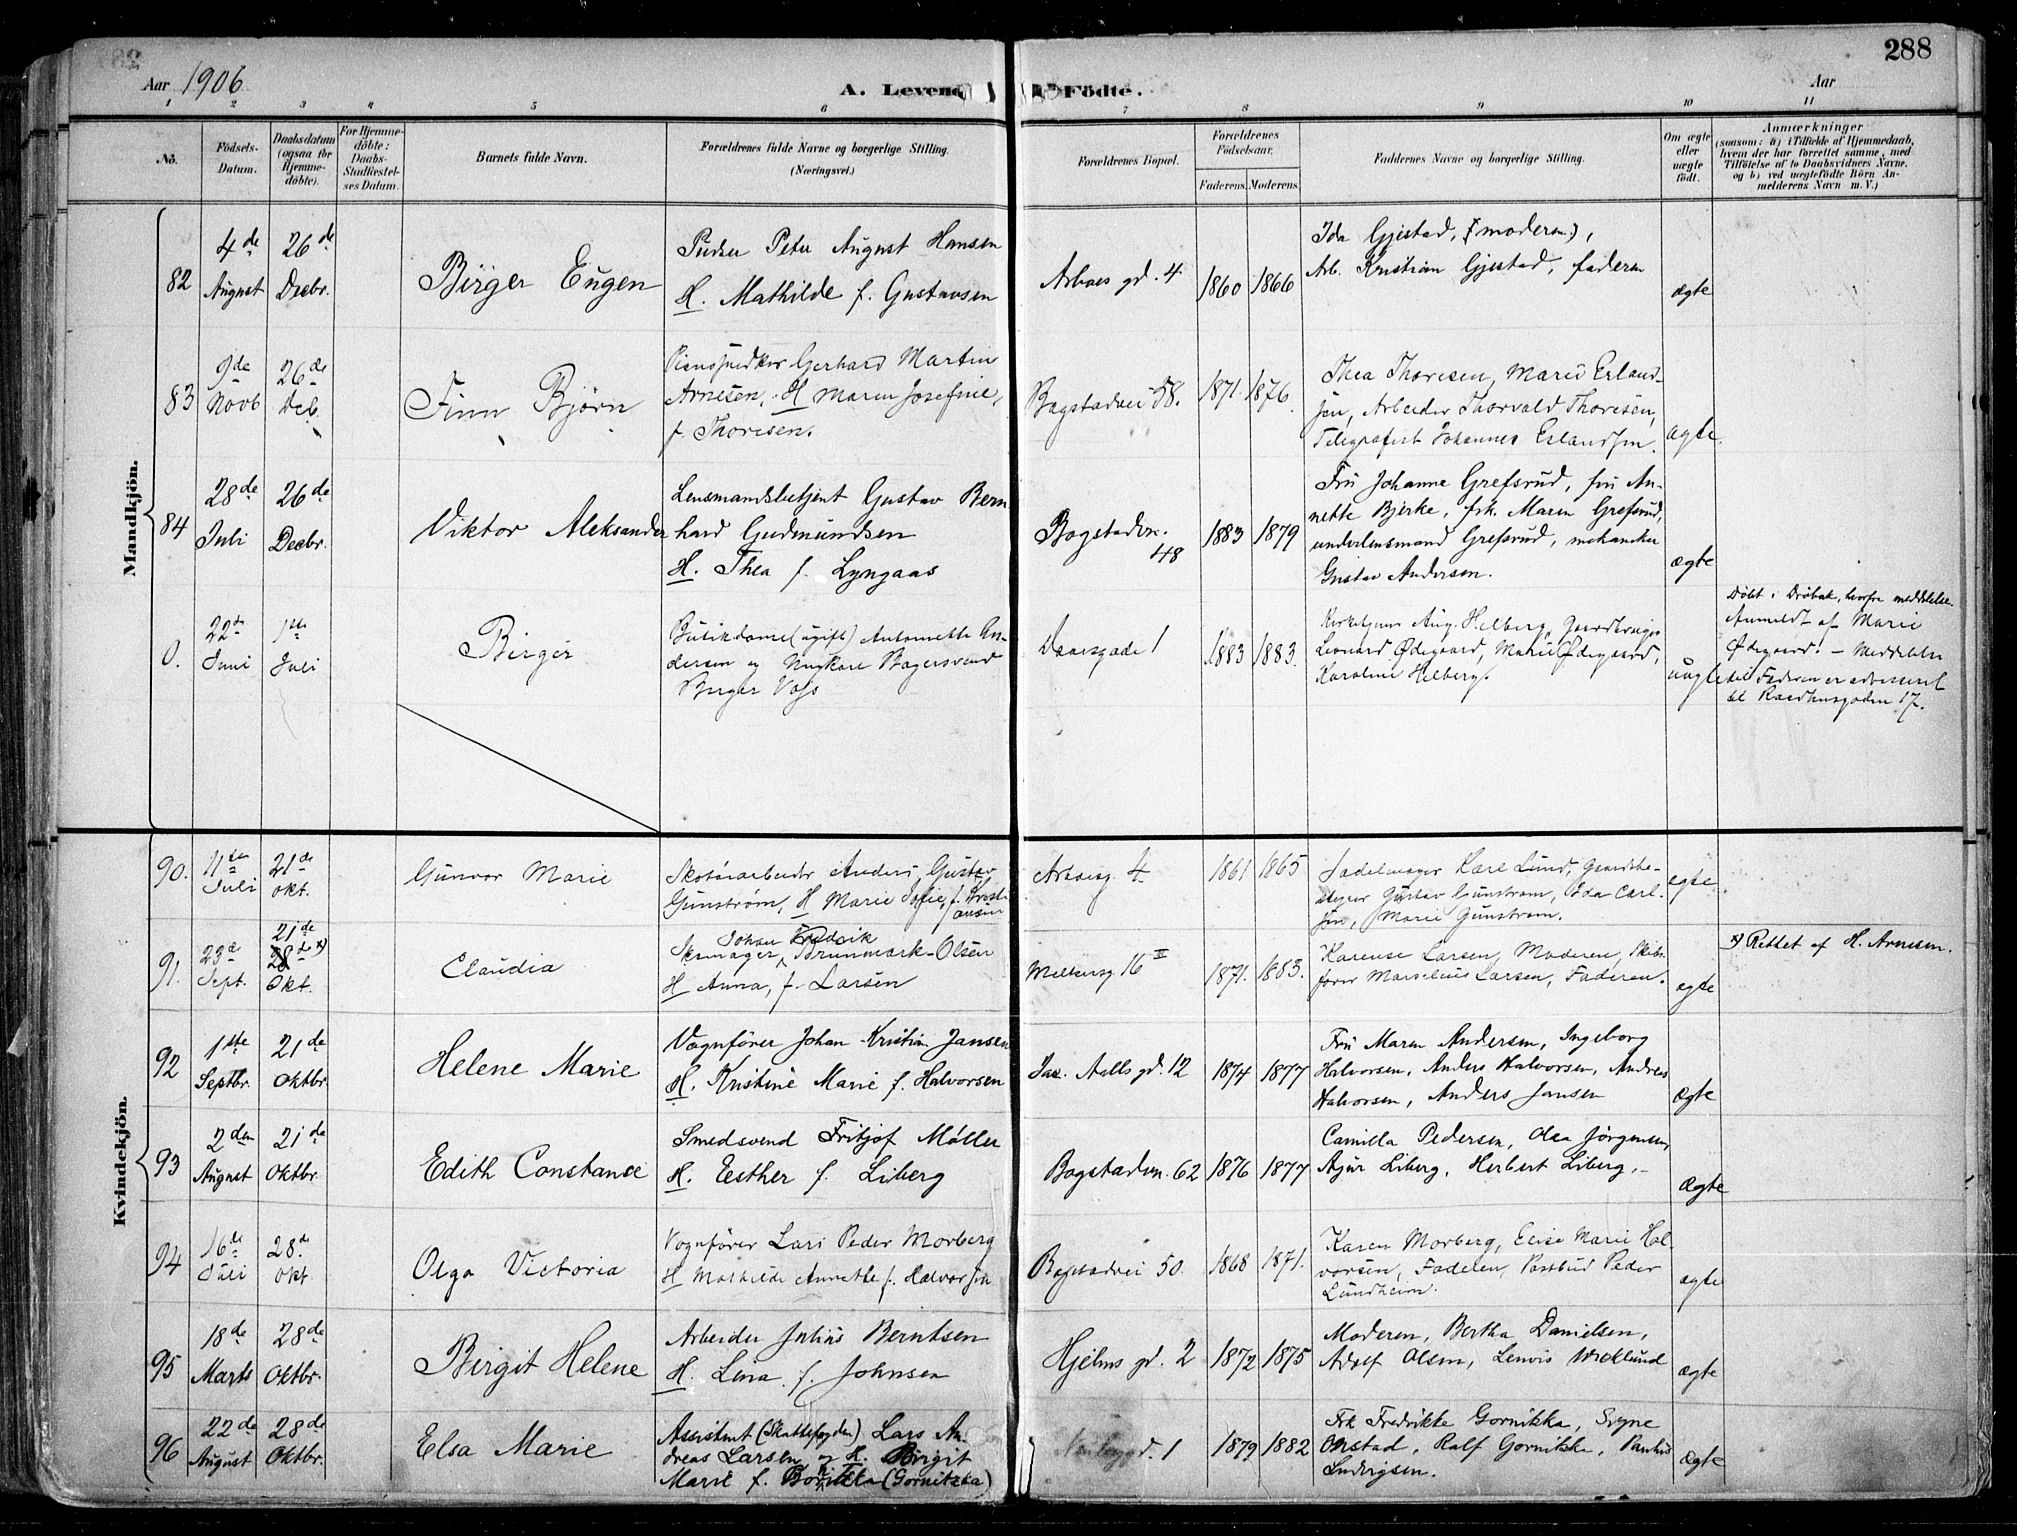 288
Aar 1906
A. Levende Födte.
Aar
1 2 3 4 5 6 7 8 9 10 11
No.
Födsels-
Datum.
Daabsdatum
(ogsaa for
Hjemme-
döbte).
For Hjemme-
döbte:
Daabs-
Stadfæstel-
ses Datum.
Barnets fulde Navn.
Forældrenes fulde Navne og borgerlige Stilling.
(Næringsvei.)
Forældrenes Bopæl.
Forældrenes
Födselsaar.
Faderens. Moderens.
Faddernes Navne og borgerlige Stilling.
Om ægte
eller
uægte
født.
Anmærkninger
(saasom: a) i Tilfælde af Hjemmedaab,
hvem der har forrettet samme, med
Tilföielse af to Daabsvidners Navne,
og b) ved uægtefödte Börn An-
melderens Navn m. V.)
Mandkjön.
82
4de
August
26de
Decbr.
Birger Eugen
Pudser Peter August Hansen
H. Mathilde f. Gustavsen
Arboes gd. 4
1860 1866
Ida Gjestad, (moderen),
Arb. Kristian Gjestad, faderen
ægte
83
9de
Novb
26de
Deb.
Finn Björn
Pianosnedker Gerhard Martin
Arnesen, H Maren Josefine,
f. Thoresen.
Bogstadvei 58.
1871. 1876.
Thea Thoresen, Marie Erland-
sen, Arbeider Thorvald Thoresen,
Telegrafist Johannes Erlandsen.
ægte.
84
28de
Juli
26de
Decbr.
Viktor Aleksander
Lensmandsbetjent Gustav Bern
hard Gudmundsen
H. Thea f. Lyngaas
Bogstadvn.
48
1883 1879
Fru Johanne Grefsrud, fru An-
nette Bjerke, frk. Maren Grefsrud,
underlensmand Grefsrud, mekaniker
Gustav Andersen.
ægte
0.
22de
Juni
1ste
Juli
Birger
Butikdame (ugift) Antonette An-
dersen og Ungkarl Bagersvend
Birger Voss
Daasgade 1
1883 1883.
Aug. Helberg,
Leonard Ødegaard, Marie Ødegaard,
Karoline Helberg.
uægte
Döbt i Dröbak, hvorfra meddelelse.
Anmeldt af Marie
Ødegaard. – Meddelelse
til Faderen er adresseret
til Raadhusgaden 17.
Kvindekjön.
90.
11te
Juli
21de
Okt.
Gunvor Marie
Skotöiarbeider Anders Gustav
Gunström, H Marie Sofie, f. Kristi
ansen
Arboesg 4
1861 1865
Sadelmager Karl Lund, Gaardbe-
styrer Gustav Gunström, Ida Carl-
sen, Marie Gunström.
ægte
91.
23de
Sept.
21de
28de x)
Okt.
Claudia
Johan Fredrik
Skomager Brunmark-Olsen
H Anna, f. Larsen
Meltzersg 16 II
1871. 1883.
Karense Larsen, Moderen, Skibs
förer Marselius Larsen, Faderen.
ægte
x) Rettet af H. Arnesen.
92
1ste
Septbr.
21de
Oktbr.
Helene Marie
Vognfører Johan Kristian Jansen
H. Kristine Marie f. Halvorsen
Jac. Aalls gd. 12
1874 1877
Fru Maren Andersen, Ingeborg
Halvorsen, Anders Halvorsen, Andreas
Halvorsen, Anders Jansen
ægte
93
2den
August
21de
Oktbr.
Edith Constance
Smedsvend Fritjof Møller
H. Eesther f. Liberg
Bogstadvn. 62
1876 1877
Camilla Pedersen, Olea Jörgensen,
Liberg, Herbert Liberg, –
Ægte
94
16de
Juli
28de
Okt
Olga Victoria
Vognfører Lars Peder Morberg
H Mathilde Annette f. Halvorsen
Bogstadvei 50.
1868 1871.
Karen Morberg, Elise Marie Hal-
vorsen, Faderen, Postbud Peder
Lundheim.
ægte
95
18de
Marts
28de
Oktbr.
Birgit Helene
Arbeider Julius Berntsen
H. Lina f. Johnsen
Hjelms gd. 2
1872 1875
Moderen, Bertha Danielsen,
Adolf Olsen, Wicklund
ægte
96
22de
August
28de
Oktbr.
Elsa Marie
Assistent (Skattefogden) Lars An-
dreas Larsen og H. Birgit
Marie f. (Gornitzka)
gd. 1
1879 1882
Frk Fredrikke Gornitzka, Signe
Onstad, Ralf Gornitzka,
Ludvigsen.
ægte